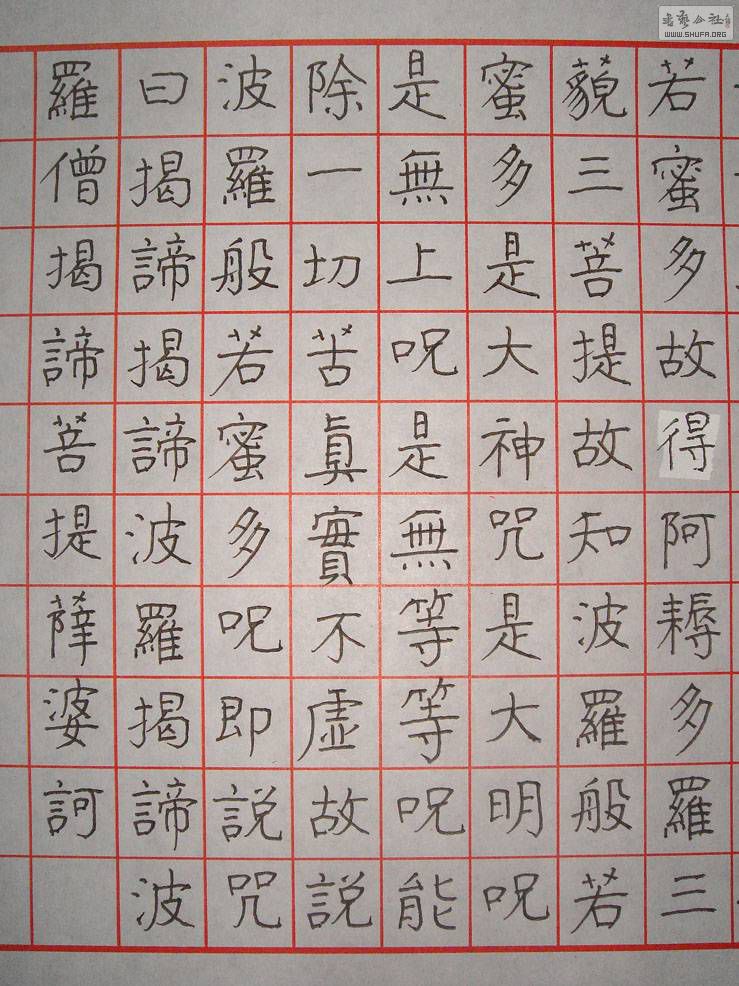 若蜜多故得阿耨多羅三
藐三菩提故知波羅般若
蜜多是大神咒是大明呪
是無上呪是無等等呪能
除一切苦眞實不虛故説
波羅般若蜜多呪即説咒
曰揭諦揭諦波羅揭諦波
羅僧揭諦菩提薩婆訶
WWW.SHUFA.ORG